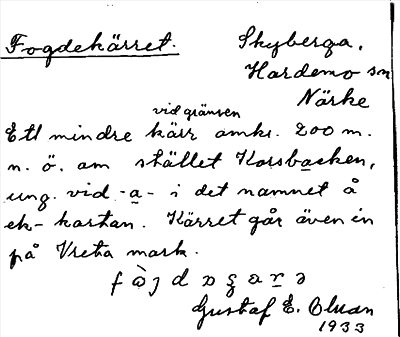 Fogdekärret. Skyberga,
Hardemo sn
Närke
vid gränsen
Ett mindre kärr omkr. 200 m.
n. ö. om stället Korsbacken,
ung. vid -a- i det namnet å
ek-kartan. Kärret går även in
på Vreta mark.
Gustaf E. Olsson
1933